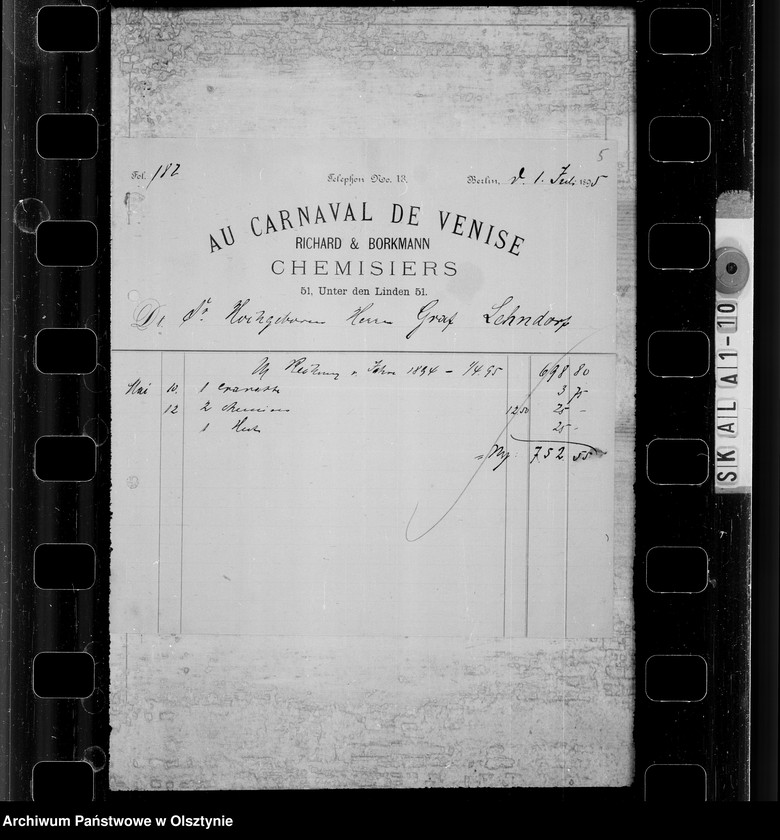 5
Fol. 182 Telephon No. 13. Berlin, d. 1. Juli 1895
AU CARNAVAL DE VENISE
RICHARD & BORKMANN
CHEMISIERS
51, Unter den Linden 51.
Sr. Hochgeboren Herrn Graf Lehndorf
Rechnung v. Jahre 1894 – 1/4 95 698 80
Mai 10. 1 Cravatte 3 75
12 2 Chemisen 12 50 25 –
1 Hut 25 –
752 55
SKALA 1-10
Archiwum Państwowe w Olsztynie